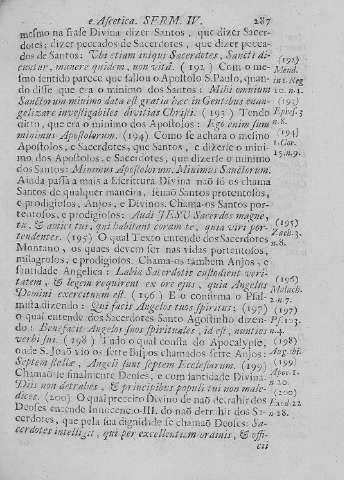 e Ascetica. SERM. IV. 287
mesmo na frase Divina dizer Santos, que dizer Sacer-
dotes; dizer peccados de Sacerdotes, que dizer pecca-
dos de Santos: Ubi etiam inquis Sacerdotes, Sancti di-
cuntur, munere quidem, non vita. (192) Com o mes-
mo sentido parece que fallou o Apostolo S. Paulo, quan-
do disse que era o minimo dos Santos: Mihi omnium
Sanctorum minimo data est gratia hæc in Gentibus euan-
gelizare investigabiles divitias Christi. (193) Tendo
ditto, que era o minimo dos Apostolos: Ego enim sum
minimus Apostolorum. (194) Como se achara o mesmo
Apostolos, e Sacerdotes, que Santos, e dizerse o mini-
mo dos Apostolos, e Sacerdotes, que dizerse o minimo
dos Santos: Minimus Apostolorum, Minimus Sanctorum.
Ainda passa a mais a Escrittura Divina naõ só os chama
Santos de qualquer maneira, senaõ Santos portentosos,
e prodigiosos, Anjos, e Divinos. Chama-os Santos por-
tentosos, e prodigiosos: Audi JESU Sacerdos magne,
tu, & amici tui, qui habitant coram te, quia viri por-
tendentes. (195) O qual Texto entende dos Sacerdotes
Montano, os quaes devem ser nas vidas portentosos,
milagrosos, e prodigiosos. Chama-os tambem Anjos, e
santidade Angelica: Labia Sacerdotis custodient veri-
tatem, & legem requirent ex ore ejus, quia Angelus
Domini exercituum est. (196) E o confirma o Psal-
mista dizendo: Qui facis Angelos tuos spiritus; (197)
o qual entende dos Sacerdotes Santo Agostinho dizen-
do: Benefacit Angelos suos spirituales, id est, nunties
verbi sui. (198) Tudo o qual consta do Apocalypse,
onde S. Joaõ vio os sette Bispos chamados sette Anjos:
Septem stellæ, Angeli sunt septem Ecclesiarum. (199)
Chamaõ-se finalmente Deoses, e com santidade Divina.
Diis non detrahes, & principibus populi tui non male-
dices. (200) O qual preceito Divino de naõ detrahir dos
Deoses entende Innocencio III. do naõ detrahir dos Sa-
cerdotes, que pela sua dignidade se chamaõ Deoses: Sa-
cerdotes intelligit, qui per excellentiam ordinis, & offi-
cii
(192)
Mend.
in 1. Reg
10. n. 1.
(193)
Ephes. 3
n. 8.
(194)
1. Cor.
15. n. 9.
(195)
Zach. 3.
n. 8.
(196)
Malach.
2. n. 7.
(197)
Ps. 103.
n. 4.
(198)
Aug. ibi.
(199)
Apoc. 1.
n. 20.
(200)
Exod. 22
n. 28.